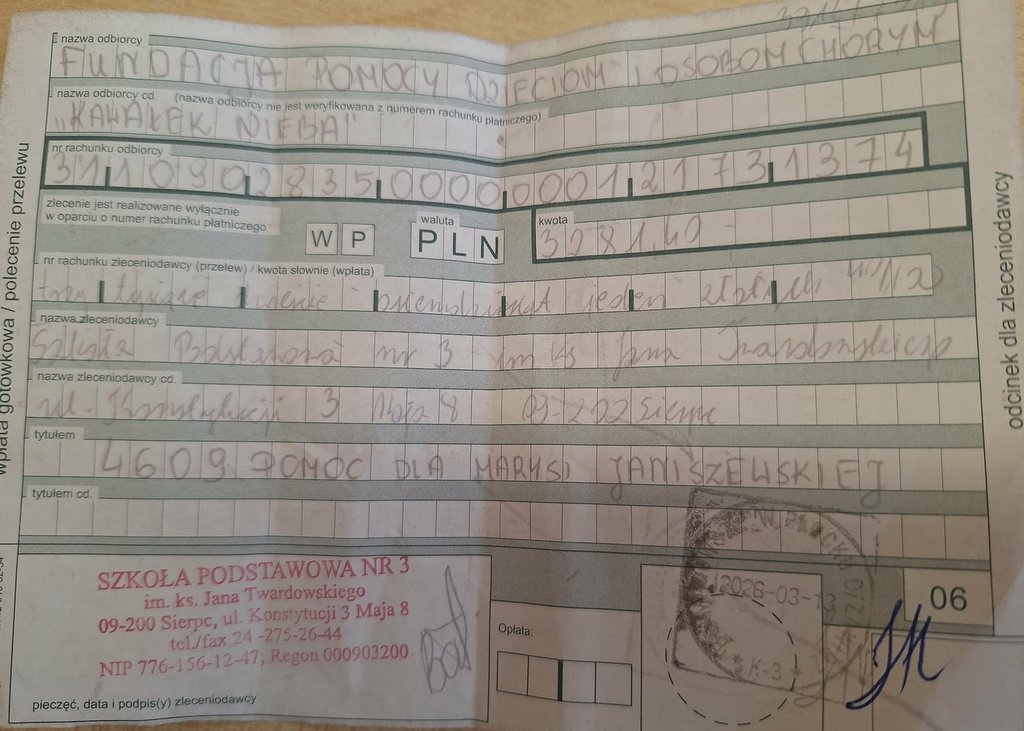 nazwa odbiorcy
FUNDACJA POMOCY DZIECIOM I OSOBOM CHORYM
nazwa odbiorcy cd. (nazwa odbiorcy nie jest weryfikowana z numerem rachunku płatniczego)
"KAWAŁEK NIEBA"
nr rachunku odbiorcy
31 1090 2835 0000 0001 2173 1374
zlecenie jest realizowane wyłącznie
w oparciu o numer rachunku płatniczego
W P
waluta
PLN
kwota
3281,40
nr rachunku zleceniodawcy (przelew) / kwota słownie (wpłata)
trzy tysiące dwieście osiemdziesiąt jeden złotych 40/100
nazwa zleceniodawcy
Szkoła Podstawowa nr 3 im ks Jana Twardowskiego
nazwa zleceniodawcy cd.
ul. Konstytucji 3 Maja 8 Sierpc
tytułem
4609 POMOC DLA MARYSI JANISZEWSKIEJ
tytułem cd.
SZKOŁA PODSTAWOWA NR 3
im. ks. Jana Twardowskiego
09-200 Sierpc, ul. Konstytucji 3 Maja 8
tel./fax 24 -275-26-44
NIP 776-156-12-47, Regon 000903200
pieczęć, data i podpis(y) zleceniodawcy
Opłata:
2026-03-13
06
wpłata gotówkowa / polecenie przelewu
odcinek dla zleceniodawcy